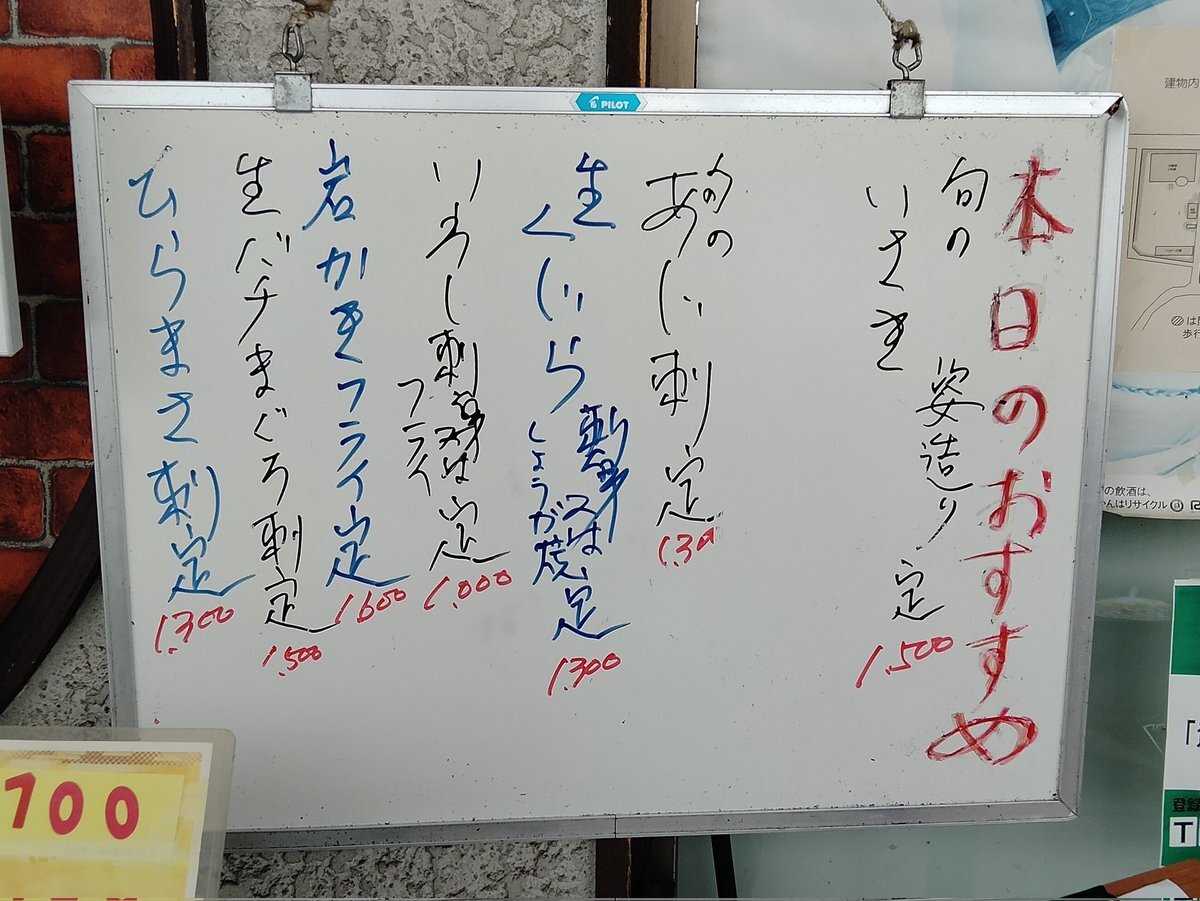 PILOT
本日のおすすめ
旬の
いさき
姿造り定
1,500
旬の
あじ刺定
1,300
生くじら
刺身
又は
しょうが焼
定
1,300
いわし
刺身又は
フライ
定
1,000
岩かきフライ定
1600
生バチまぐろ刺定
1,500
ひらまさ刺定
1,300
700
建物内
の飲酒は、
んはリサイクル
歩行
登録
T